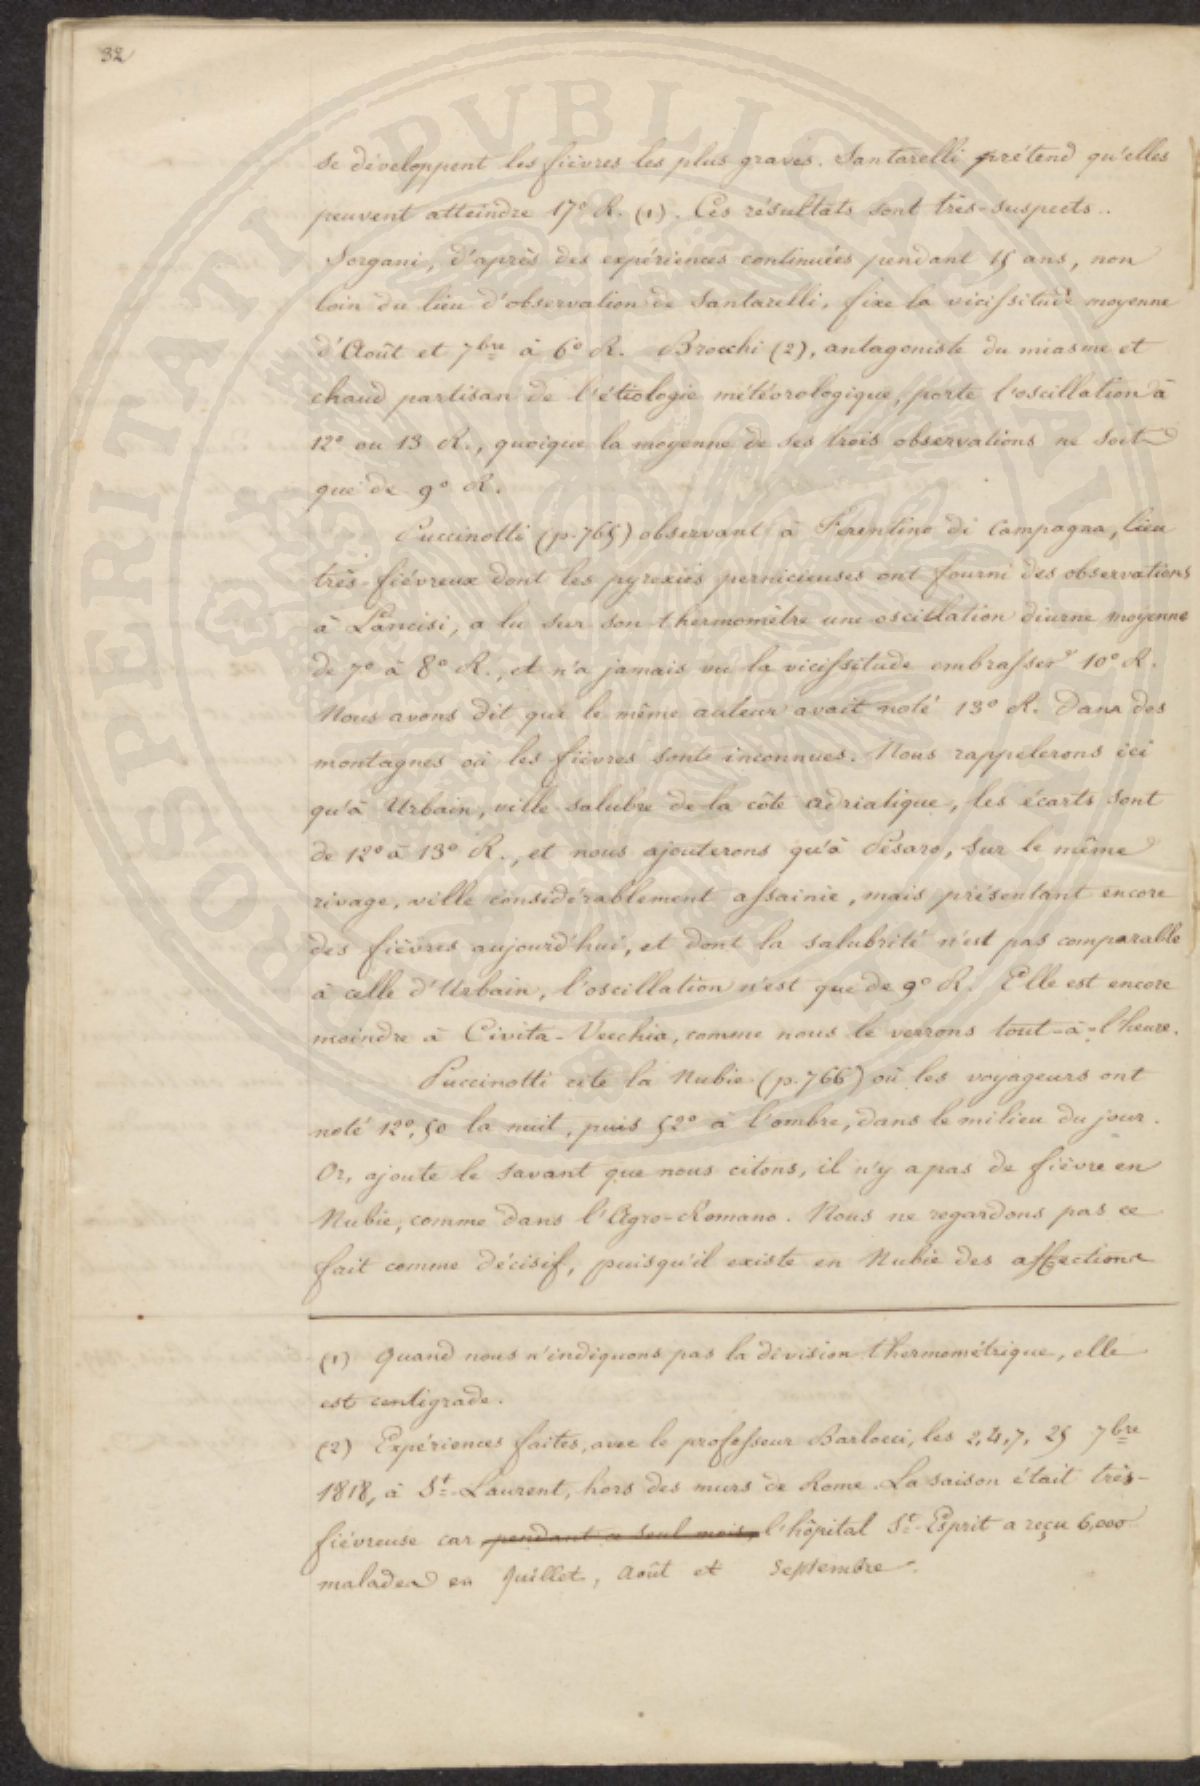 32
se développent les fièvres les plus graves. Santarelli prétend qu'elles
peuvent atteindre 17° R. (1). Ces résultats sont très-suspects..
Sorgani, d'après des expériences continuées pendant 15 ans, non
loin du lieu d'observation de Santarelli, fixe la vicissitude moyenne
d'Août et 7bre à 6° R. Brocchi (2), antagoniste du miasme et
chaud partisan de l'étiologie météorologique, porte l'oscillation à
12° ou 13 R., quoique la moyenne de ses trois observations ne soit
que de 9° R.
Puccinotti (p. 765) observant à Ferentino di Campagna, lieu
très-fiévreux dont les pyrexies pernicieuses ont fourni des observations
à Lancisi, a lu sur son thermomètre une oscillation diurne moyenne
de 7° à 8° R., et n'a jamais vu la vicissitude embrasser 10° R.
Nous avons dit que le même auteur avait noté 13° R. dans des
montagnes où les fièvres sont inconnues. Nous rappelerons ici
qu'à Urbain, ville salubre de la côte adriatique, les écarts sont
de 12° à 13° R., et nous ajouterons qu'à Pésaro, sur le même
rivage, ville considérablement assainie, mais présentant encore
des fièvres aujourd'hui, et dont la salubrité n'est pas comparable
à celle d'Urbain, l'oscillation n'est que de 9° R. Elle est encore
moindre à Civita-Vecchia, comme nous le verrons tout-à-l'heure.
Puccinotti cite la Nubie (p. 766) où les voyageurs ont
noté 12°,50 la nuit, puis 52° à l'ombre, dans le milieu du jour.
Or, ajoute le savant que nous citons, il n'y a pas de fièvre en
Nubie, comme dans l'Agro-Romano. Nous ne regardons pas ce
fait comme décisif, puisqu'il existe en Nubie des affections
(1) Quand nous n'indiquons pas la division thermométrique, elle
est centigrade.
(2) Expériences faites, avec le professeur Barlocci, les 2, 4, 7, 25 7bre
1818, à St-Laurent, hors des murs de Rome. La saison était très-
fiévreuse car pendant ce seul mois, l'hôpital St-Esprit a reçu 6,000
malades en Juillet, Août et Septembre.
PROSPERITATI PUBLICAE